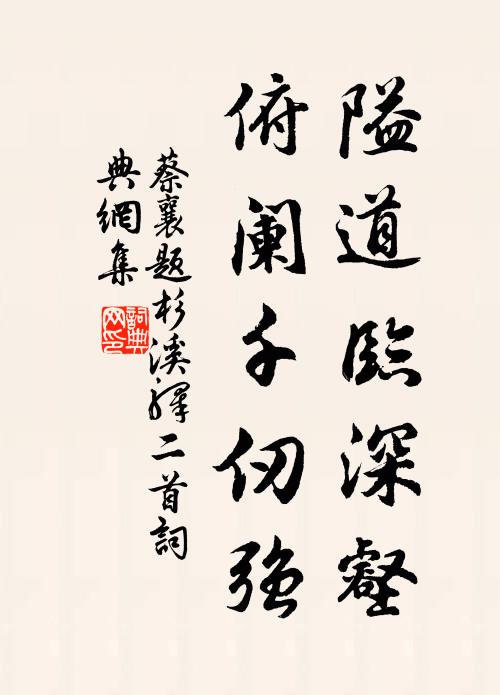 隘道臨深壑
俯阑千仞强
蔡襄題杉溪驛二首詞
典網集
詞典
网印